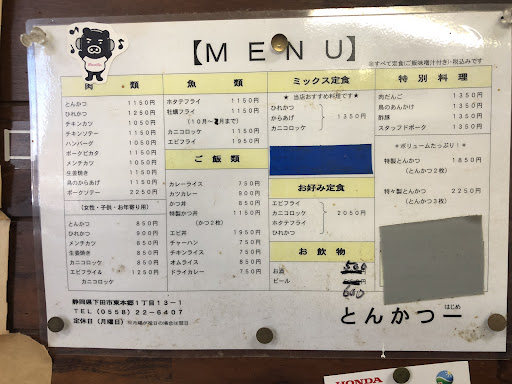 【MENU】
※すべて定食(ご飯味噌汁付き)・税込みです
肉類
とんかつ 1150円
ひれかつ 1250円
チキンカツ 1150円
チキンソテー 1150円
ハンバーグ 1150円
ポークピカタ 1150円
メンチカツ 1150円
生姜焼き 1150円
鳥のからあげ 1150円
ポークソテー 2250円
(女性・子供・お年寄り用)
とんかつ 850円
ひれかつ 900円
メンチカツ 850円
生姜焼き 850円
カニコロッケ 850円
エビフライ& 1250円
カニコロッケ
魚類
ホタテフライ 1150円
牡蠣フライ 1150円
(10月~3月まで)
カニコロッケ 1150円
エビフライ 1950円
ご飯類
カレーライス 750円
カツカレー 900円
かつ丼 850円
特製かつ丼 1150円
(かつ2枚)
エビ丼 1950円
チャーハン 750円
チキンライス 750円
オムライス 850円
ドライカレー 750円
ミックス定食
★当店おすすめ料理です★
ひれかつ
からあげ 1350円
カニコロッケ
お好み定食
エビフライ
カニコロッケ 2050円
ホタテフライ
ひれかつ
お飲物
お酒 500
ビール 600
特別料理
肉だんご 1350円
鳥のあんかけ 1350円
酢豚 1350円
スタッフドポーク 1350円
※ボリュームたっぷり!※
特製とんかつ 1850円
(とんかつ2枚)
特々製とんかつ 2250円
(とんかつ3枚)
静岡県下田市東本郷1丁目13-1
TEL(0558)22-6407
定休日(月曜日)※月曜が祝日の場合は翌日
はじめ
とんかつ一
HONDA